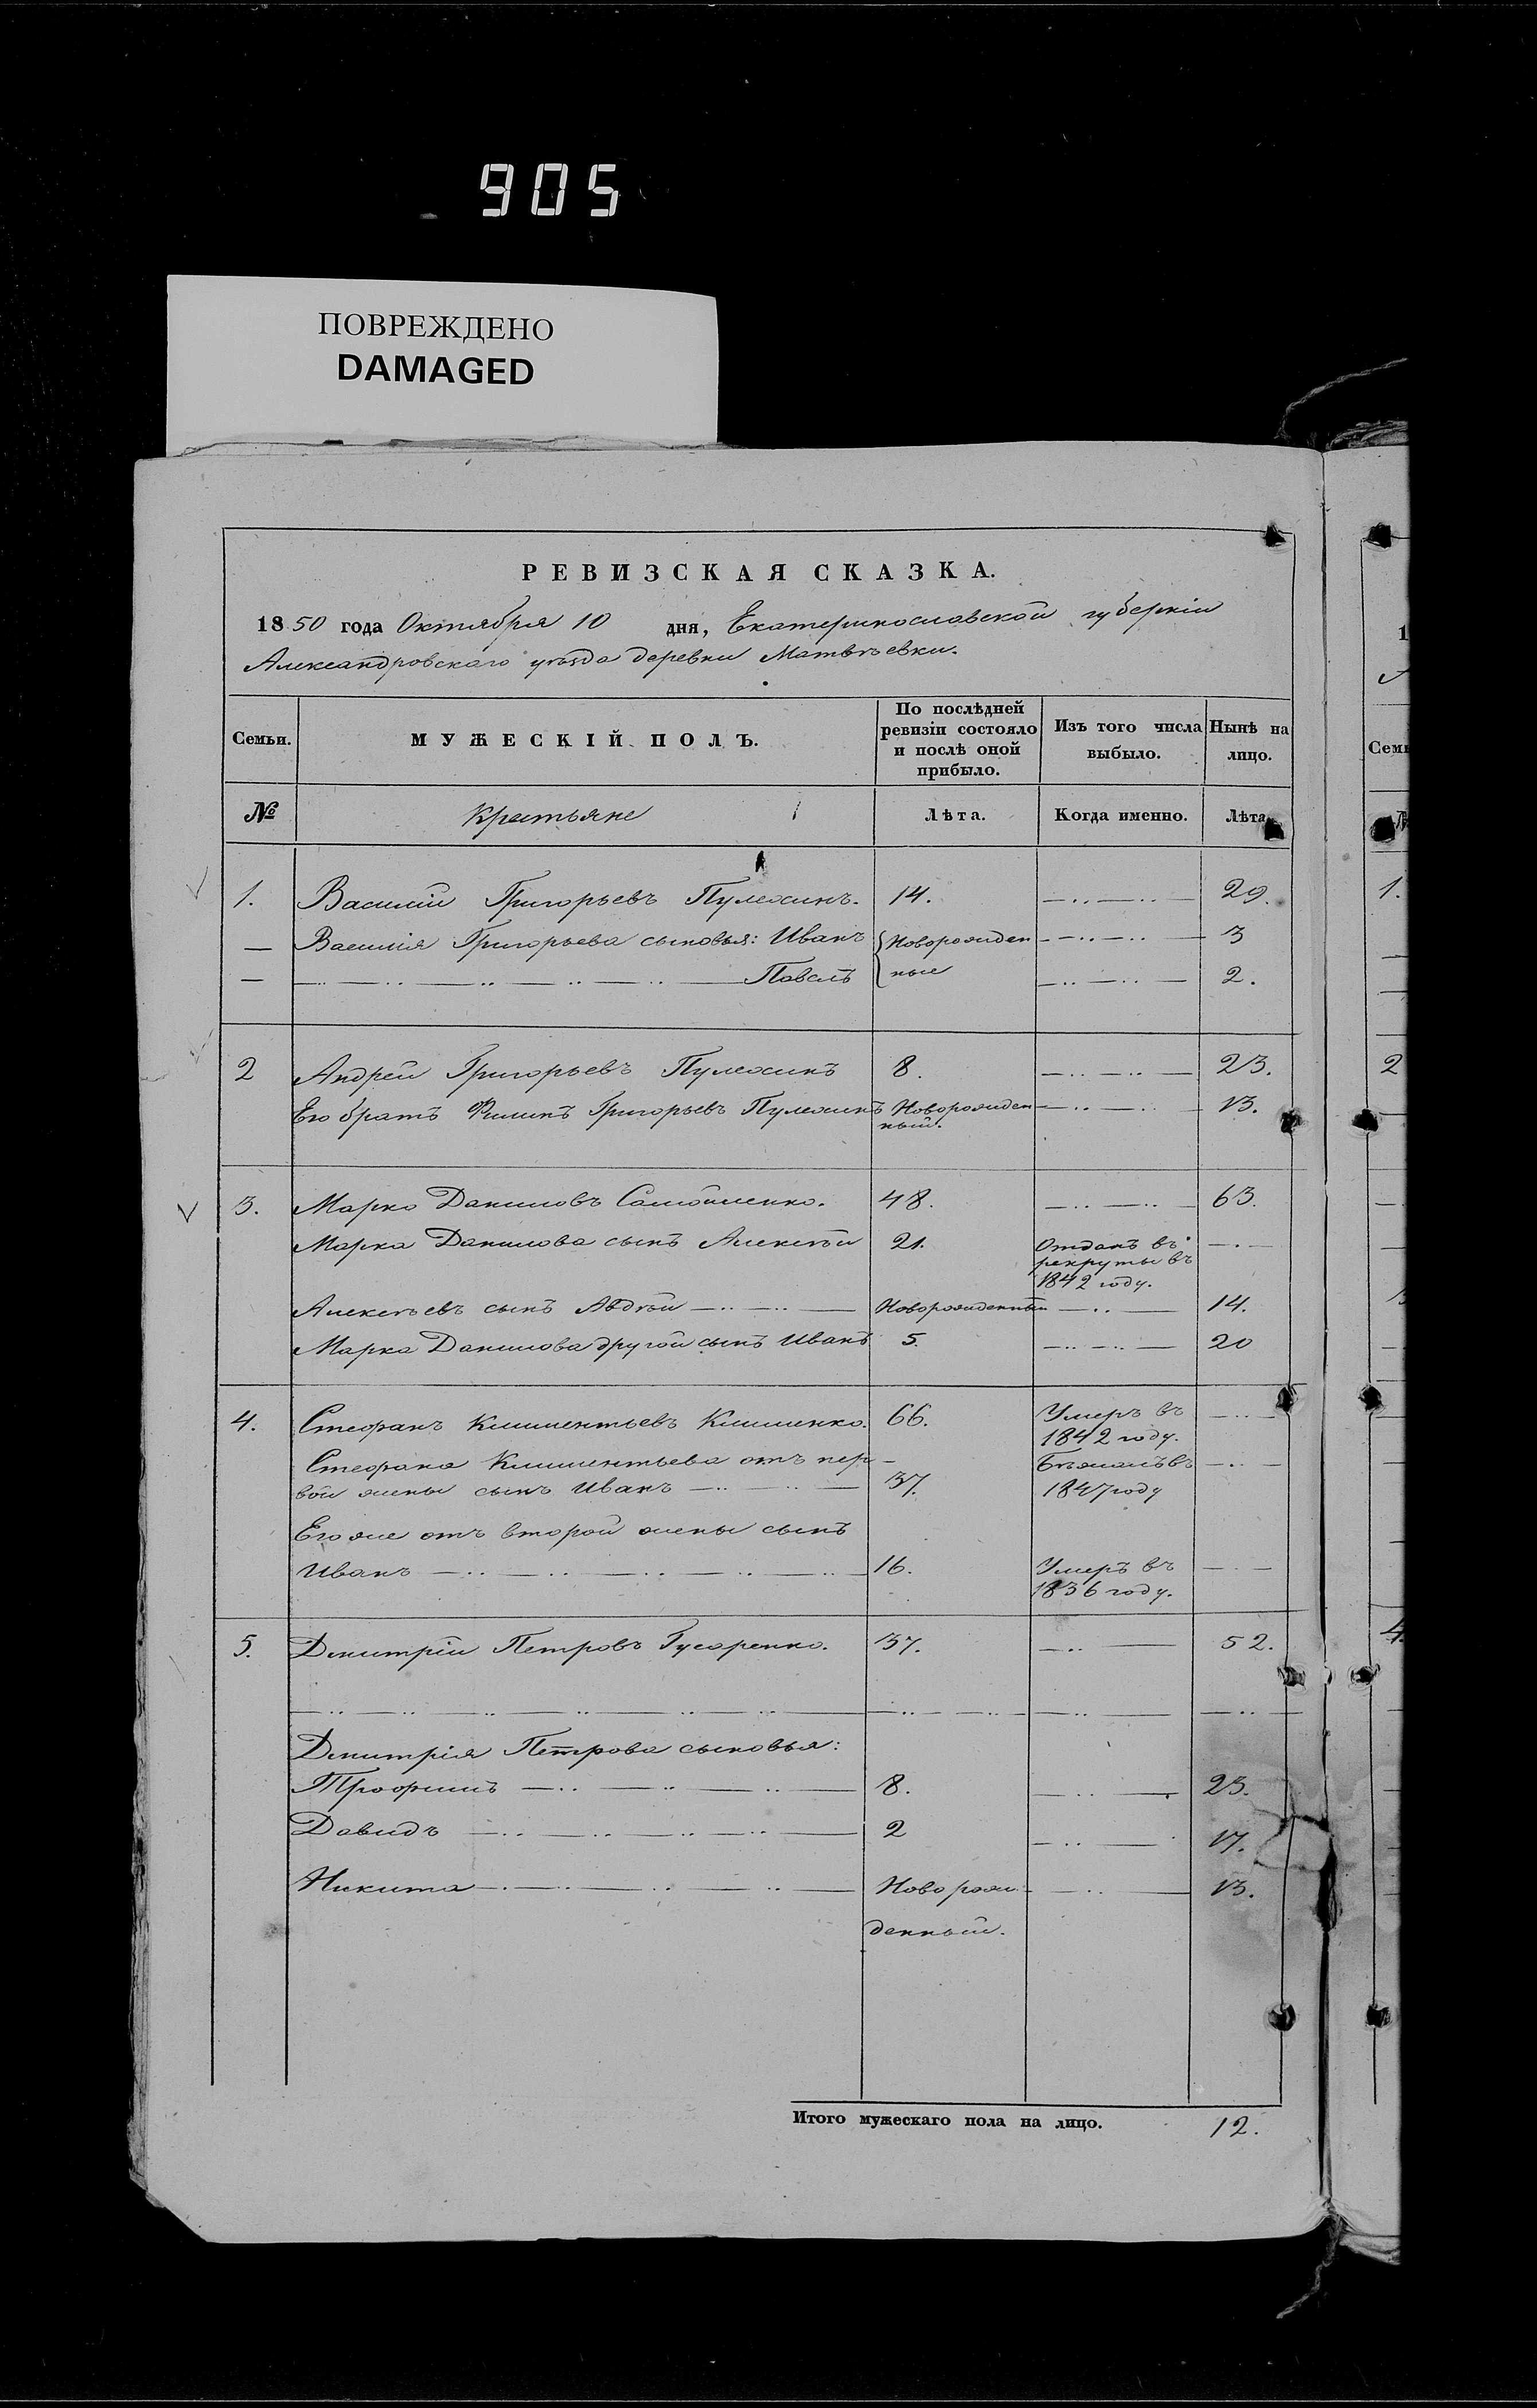 905
ПОВРЕЖДЕНО
DAMAGED
РЕВИЗСКАЯ СКАЗКА.
1850 года Октября 10 дня, Екатеринославской губерніи
Александровскаго уѣзда деревни Матвѣевки.
Семьи. МУЖЕСКІЙ ПОЛЪ. По послѣдней ревизіи состояло и послѣ оной прибыло. Изъ того числа выбыло. Нынѣ на лицо.
№ Крестьяне Лѣта. Когда именно. Лѣта
1. Василій Григорьевъ 14. 29.
Василія Григорьева сыновья: Иванъ Новорожден 3
Павелъ ные 2.
2 Андрей Григорьевъ 8. 23.
Его братъ Филипъ Григорьевъ Новорожден
ный. 13.
3. Марко Даниловъ Самойленко. 48. 63.
Марка Данилова сынъ Алексѣй 21. Отданъ въ
рекруты въ
1842 году.
Алексѣевъ сынъ Авдѣй Новорожденный 14.
Марка Данилова другой сынъ Иванъ 5. 20
4. Стефанъ Климентьевъ Клименко. 66. Умеръ въ
1842 году.
Стефана Климентьева отъ пер- Бѣжалъ въ
вой жены сынъ Иванъ 37. 1847 году
Его же отъ второй жены сынъ
Иванъ 16. Умеръ въ
1836 году.
5. Дмитрій Петровъ Гусаренко. 37. 52.
Дмитрія Петрова сыновья:
Трофимъ 8. 23.
Давидъ 2 17.
Никита Новорож- 13.
денный.
Итого мужескаго пола на лицо. 12.
1
Семь
1.
2
4.